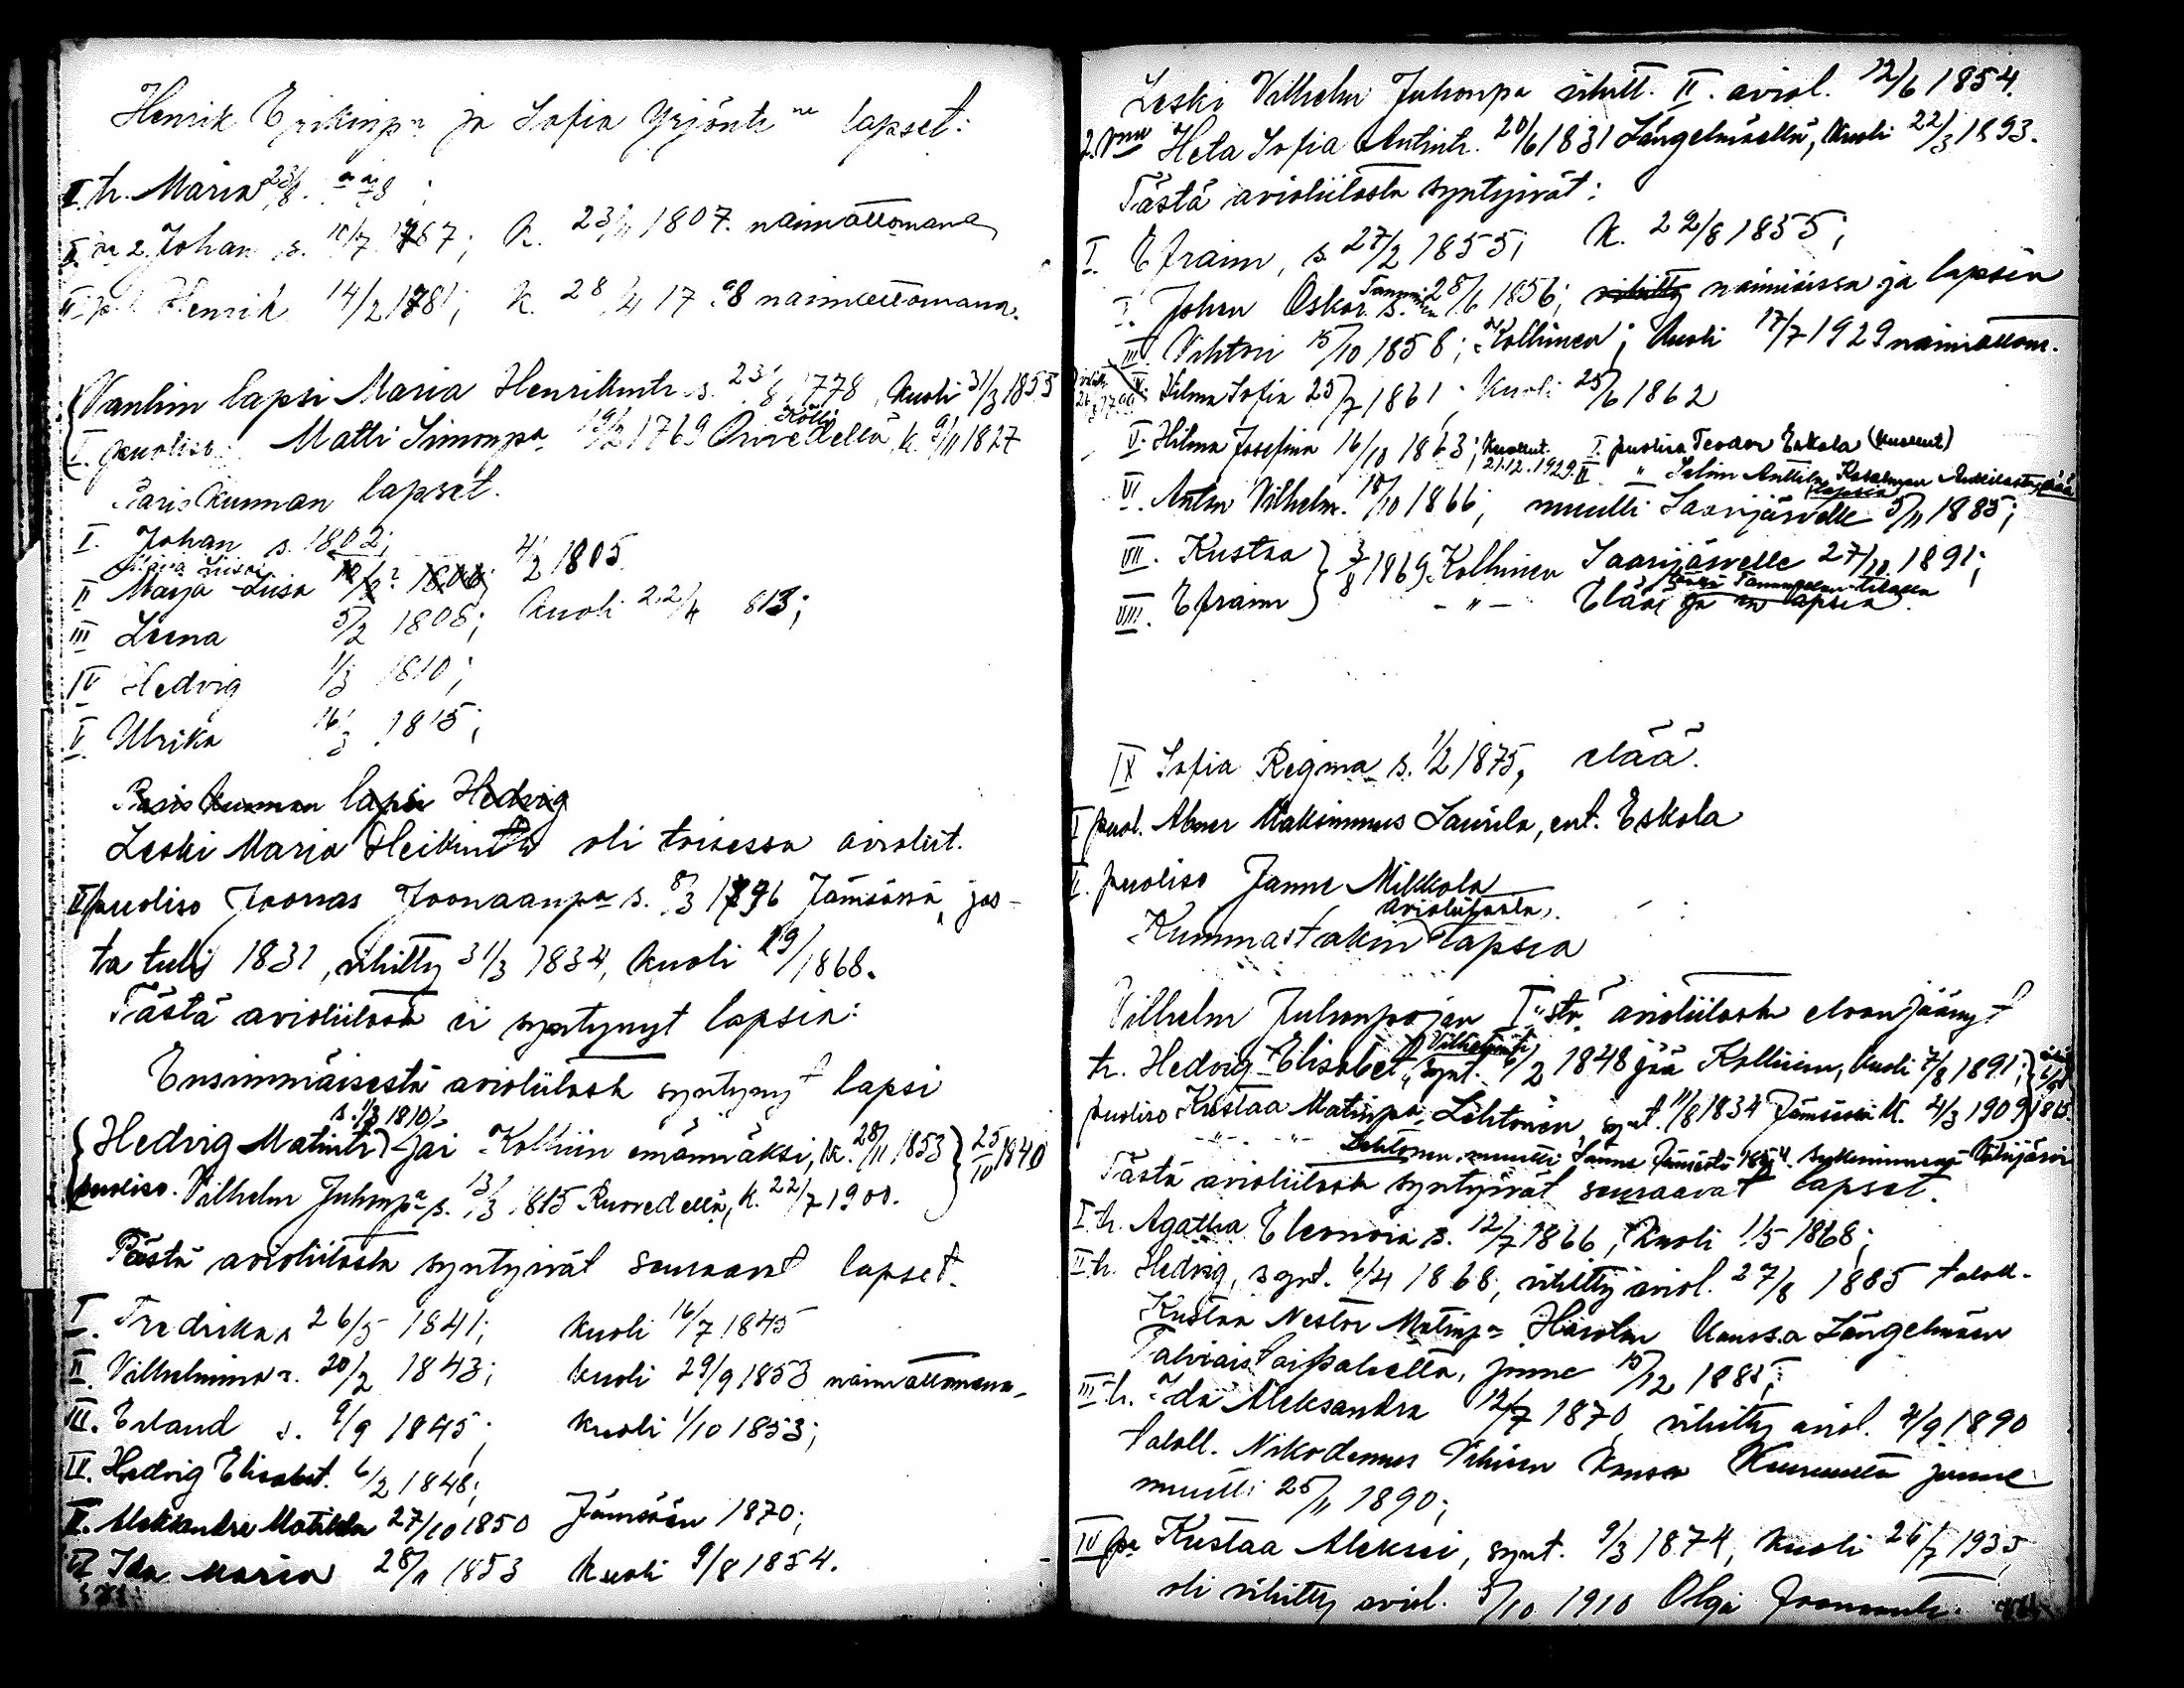 Henrik Erikinpa ja Sofia Yrjönt lapset:
I. tr. Maria 23/8 78;
pa 2 Johan s. 10/7 1787; k. 23/11 1807. naimattomana
Henrik 14/2 1781; k. 28/4 17 98 naimattomana.
Vanhin lapsi Maria Henrikintr s. 23/8 1778, kuoli 31/3 1855
Kölli
I. puoliso: Matti Simonpa 19/2 1769 Ruovedellä k. 9/11 1827
Pariskunnan lapset.
I. Johan s. 1802;
Maria Liisa
II Marja Liisa 1806; 4/2 1805.
III Leena 5/2 1808; kuoli 22/4 813;
IV Hedvig 1/3 1810;
V. Ulrika 16/3 1815;
Pariskunnan lapsi Hedvig
Leski Maria Heikintr oli toisessa avioliit.
II puoliso Joonas Joonaanpa s. 8/3 1796 Jämsässä, jos-
ta tuli 1831, vihitty 31/3 1834, kuoli 19/ 1868.
Tästä avioliitosta ei syntynyt lapsia:
Ensimmäisestä avioliitosta syntynyt lapsi
s. 1/3 1810/.
Hedvig Matintr jäi Kolhiin emännäksi, k. 28/11 1853 25/10 1840
puoliso. Vilhelm Juhonpa s. 13/3 1815 Ruovedellä, k. 22/7 1900.
Tästä avioliitosta syntyivät seuraavat lapset.
I. Fredrika s 26/5 1841; kuoli 16/7 1845
II. Vilhelmina s. 20/2 1843; kuoli 29/9 1853 naimattomana.
III. Erland s. 9/9 1845; kuoli 1/10 1853;
IV. Hedvig Elisabet. 6/2 1848;
V. Aleksandra Matilda 27/10 1850 Jämsään 1870;
VI Ida Maria 28/11 1853 kuoli 9/8 1854.
Leski Vilhelm Juhonpa vihitt. II. aviol. 12/6 1854.
2. vmo Heta Sofia Antintr. 20/6 1831 Längelmäellä, kuoli 22/3 1893.
Tästä avioliitosta syntyivät:
I. Efraim, s. 27/2 1855; k. 22/8 1855;
Johan Oskar s. 28/6 1856; vihitty naimisissa ja lapsia
III Vihtori 15/10 1858; Kolhinen; kuoli 17/7 1929 naimattom.
IV. Hilma Sofia 25/7 1861; kuoli 25/6 1862
V. Hilma Josefina 16/10 1863; kuollut. I. puoliso Teodor Eskola (kuollut)
21.12.1929. II " Selim Anttila
lapsia
VI. Anton Vilhelm. 18/10 1866; muutti Saarijärvelle 5/11 1885;
VII. Kustaa } 3/8 1869. Kolhinen Saarijärvelle 27/10. 1891;
VIII. Efraim } - " - Elää ja on lapsia
IX Sofia Regina s. 1/2 1875, elää.
I puol. Abner Maksimus Saurila, ent. Eskola
II. puoliso Janne Mikkola
avioliitosta
Kummastakin lapsia
Vilhelm Juhonpojan I:stä avioliitosta eloonjäänyt
Vilhelmintr
tr. Hedvig Elisabet, synt. 6/2 1848 jää Kolhiin, kuoli 7/8 1891;
puoliso Kustaa Matinpa Lehtonen synt. 11/8 1834 Jämsässä k. 4/3 1909 1865.
- " - - " - Lehtonen muutti Tänne Jämsästä
Tästä avioliitosta syntyivät seuraavat lapset.
I tr. Agatha Eleonora s. 12/7 1866, kuoli 1/5 1868;
II tr. Hedvig, synt. 6/4 1868, vihitty aviol. 27/8 1885 taloll.
Kustaa Nestor Matinpa Harolan kanssa Längelmäen
Talviaistaipaleella, jonne 15/12 1885;
III tr. Ida Aleksandra 12/7 1870, vihitty aviol. 4/9 1890
taloll. Nikodemus Vihisen kanssa jonne
muutti 25/11 1890;
IV pa Kustaa Aleksei, synt. 9/3 1874, kuoli 26/7 1935
oli vihitty aviol. 5/10 1910 Olga Joonaantr.